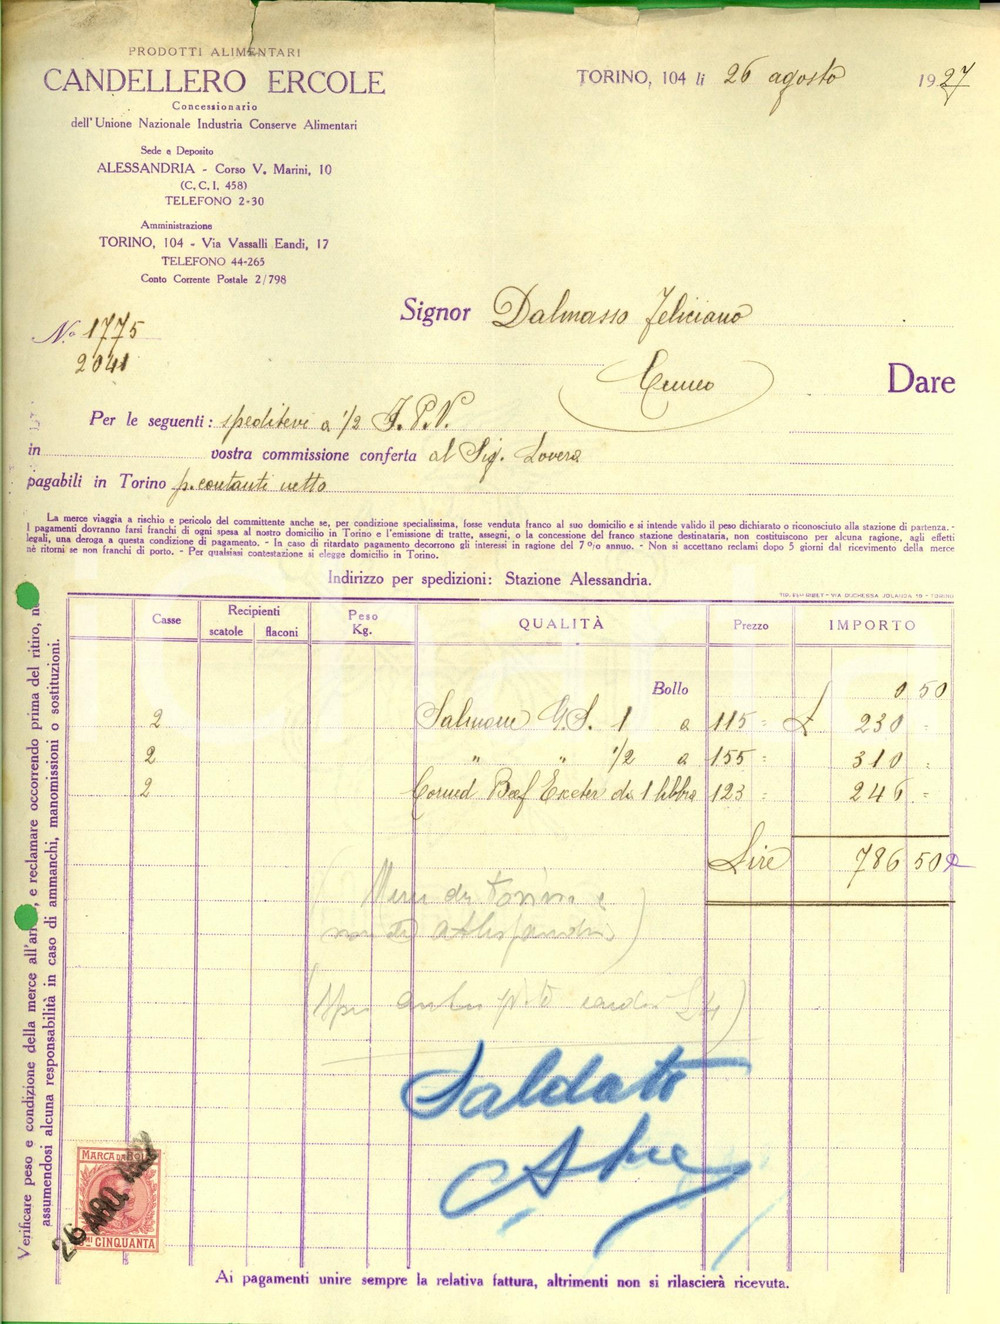 PRODOTTI ALIMENTARI
CANDELLERO ERCOLE
Concessionario
dell'Unione Nazionale Industria Conserve Alimentari
Sede e Deposito
ALESSANDRIA - Corso V. Marini, 10
(C. C. I. 458)
TELEFONO 2-30
Amministrazione
TORINO, 104 - Via Vassalli Eandi, 17
TELEFONO 44-265
Conto Corrente Postale 2/798
TORINO, 104 li 26 agosto 1927
No 1775
2041
Signor Dalmasso Feliciano
Cuneo
Dare
Per le seguenti: speditevi a 1/2 F.P.V.
in vostra commissione conferta al Sig. Lovera
pagabili in Torino p. contanti netto
La merce viaggia a rischio e pericolo del committente anche se, per condizione specialissima, fosse venduta franco al suo domicilio e si intende valido il peso dichiarato o riconosciuto alla stazione di partenza. -
I pagamenti dovranno farsi franchi di ogni spesa al nostro domicilio in Torino e l'emissione di tratte, assegni, o la concessione del franco stazione destinataria, non costituiscono per alcuna ragione, agli effetti
legali, una deroga a questa condizione di pagamento. - In caso di ritardato pagamento decorrono gli interessi in ragione del 7 % annuo. - Non si accettano reclami dopo 5 giorni dal ricevimento della merce
nè ritorni se non franchi di porto. - Per qualsiasi contestazione si elegge domicilio in Torino.
Indirizzo per spedizioni: Stazione Alessandria.
VIA DUCHESSA JOLANDA 19 - TORINO
Casse
Recipienti
scatole flaconi
Peso Kg.
QUALITÀ
Prezzo
IMPORTO
Bollo 0 50
2 Salmone G.S. 1 a 115 = £ 230 =
2 " " 1/2 a 155 = 310 =
2 Corned Beef Exeter da 1 libbra 123 = 246 =
Lire 786 50
Saldato
MARCA DA BOLLO
CINQUANTA
26 AGO. 1927
Verificare peso e condizione della merce all'arrivo, e reclamare occorrendo prima del ritiro,
assumendosi alcuna responsabilità in caso di ammanchi, manomissioni o sostituzioni.
Ai pagamenti unire sempre la relativa fattura, altrimenti non si rilascierà ricevuta.